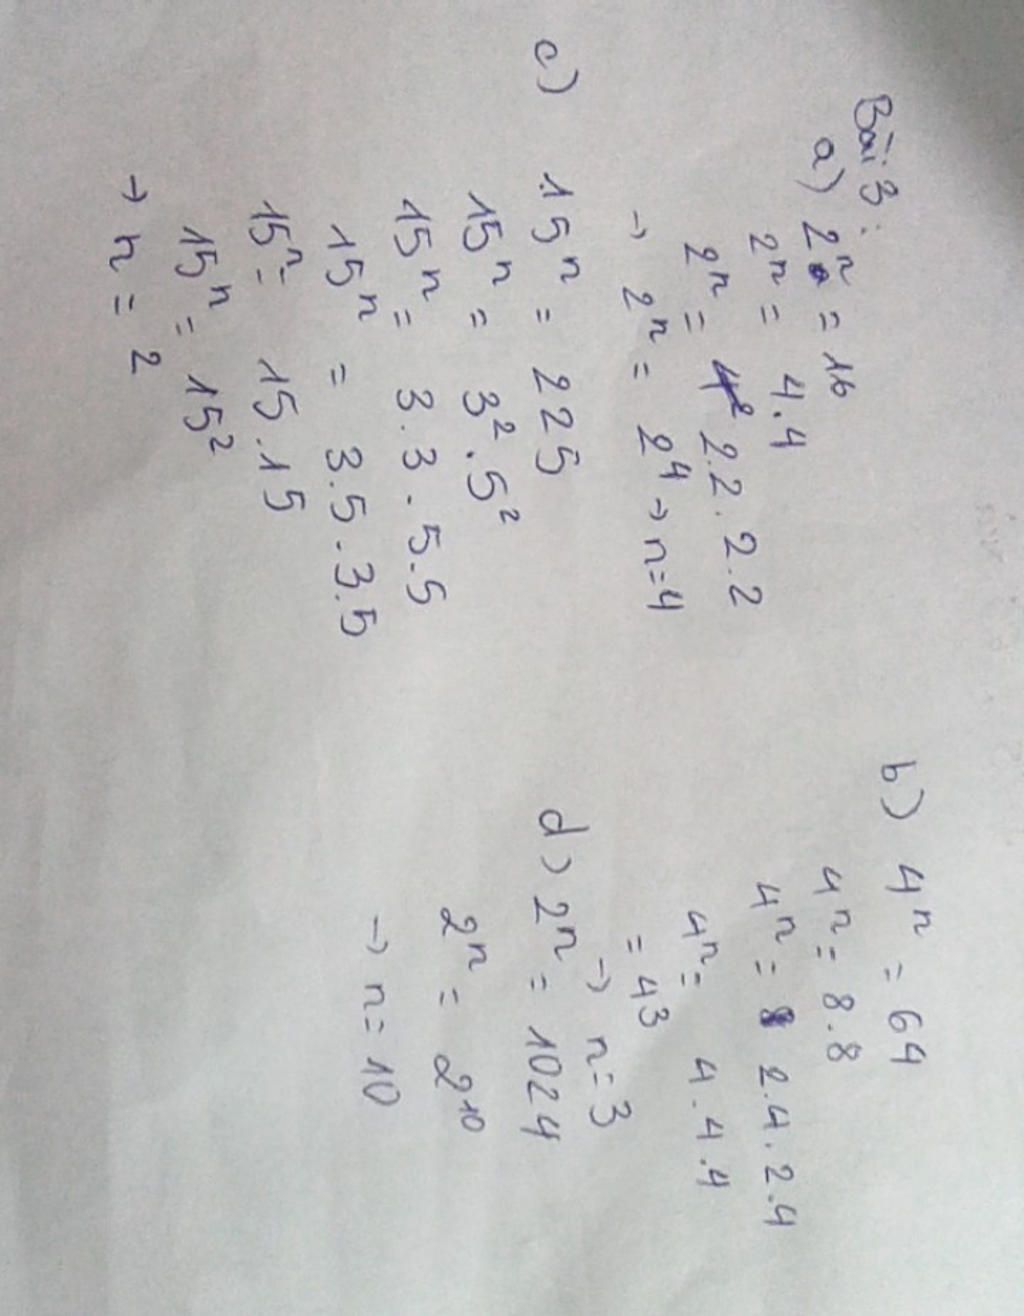 Bài 3:
a) 2ⁿ = 16
2ⁿ = 4.4
2ⁿ = 2.2.2.2
→ 2ⁿ = 2⁴ → n=4
b) 4ⁿ = 64
4ⁿ = 8.8
4ⁿ = 2.4.2.4
4ⁿ = 4.4.4
= 4³
→ n=3
c) 15ⁿ = 225
15ⁿ = 3².5²
15ⁿ = 3.3.5.5
15ⁿ = 3.5.3.5
15ⁿ = 15.15
15ⁿ = 15²
→ n = 2
d) 2ⁿ = 1024
2ⁿ = 2¹⁰
→ n = 10